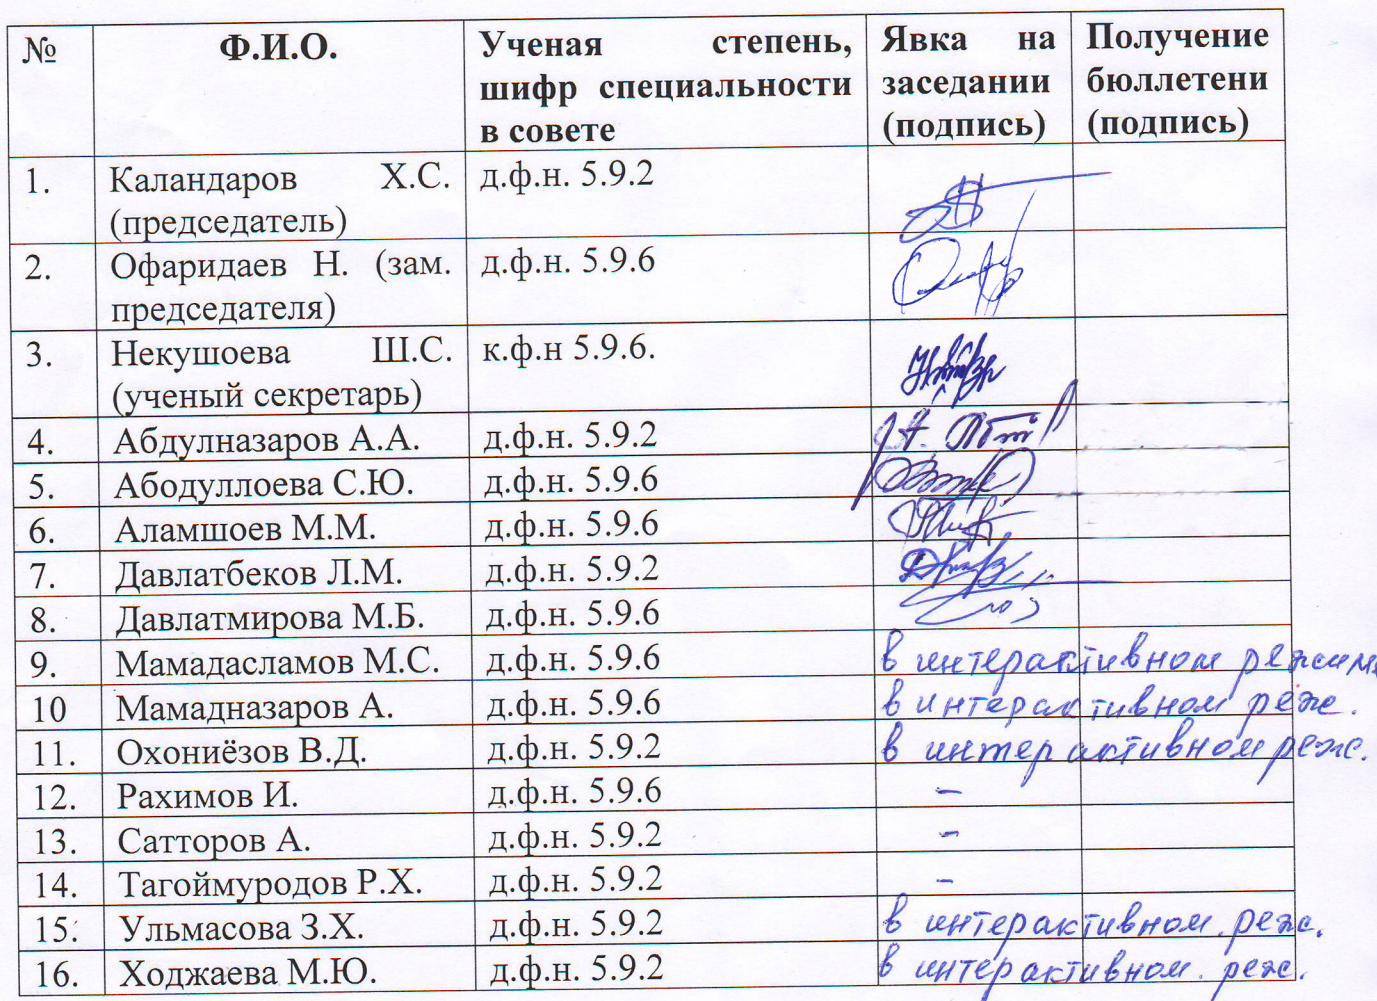 № Ф.И.О. Ученая степень, Явка на Получение
шифр специальности заседании бюллетени
в совете (подпись) (подпись)
1. Каландаров Х.С. д.ф.н. 5.9.2
(председатель)
2. Офаридаев Н. (зам. д.ф.н. 5.9.6
председателя)
3. Некушоева Ш.С. к.ф.н 5.9.6.
(ученый секретарь)
4. Абдулназаров А.А. д.ф.н. 5.9.2
5. Абодуллоева С.Ю. д.ф.н. 5.9.6
6. Аламшоев М.М. д.ф.н. 5.9.6
7. Давлатбеков Л.М. д.ф.н. 5.9.2
8. Давлатмирова М.Б. д.ф.н. 5.9.6
9. Мамадасламов М.С. д.ф.н. 5.9.6 в интерактивном режиме
10 Мамадназаров А. д.ф.н. 5.9.6 в интерактивном реж.
11. Охониёзов В.Д. д.ф.н. 5.9.2 в интерактивном реж.
12. Рахимов И. д.ф.н. 5.9.6 –
13. Сатторов А. д.ф.н. 5.9.2 –
14. Тагоймуродов Р.Х. д.ф.н. 5.9.2 –
15. Ульмасова З.Х. д.ф.н. 5.9.2 в интерактивном реж.
16. Ходжаева М.Ю. д.ф.н. 5.9.2 в интерактивном реж.